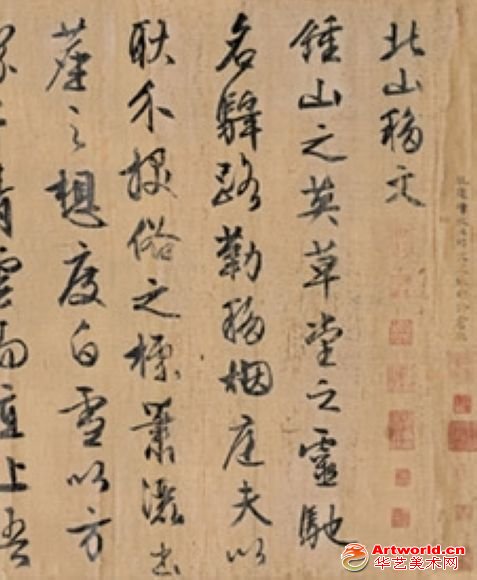 北山移文
鍾山之英草堂之靈馳
名驛路勒移烟庭夫以
耿介拔俗之標蕭灑出
塵之想度白雪以方
青雲而直上吾
Artworld.cn
华艺美术网